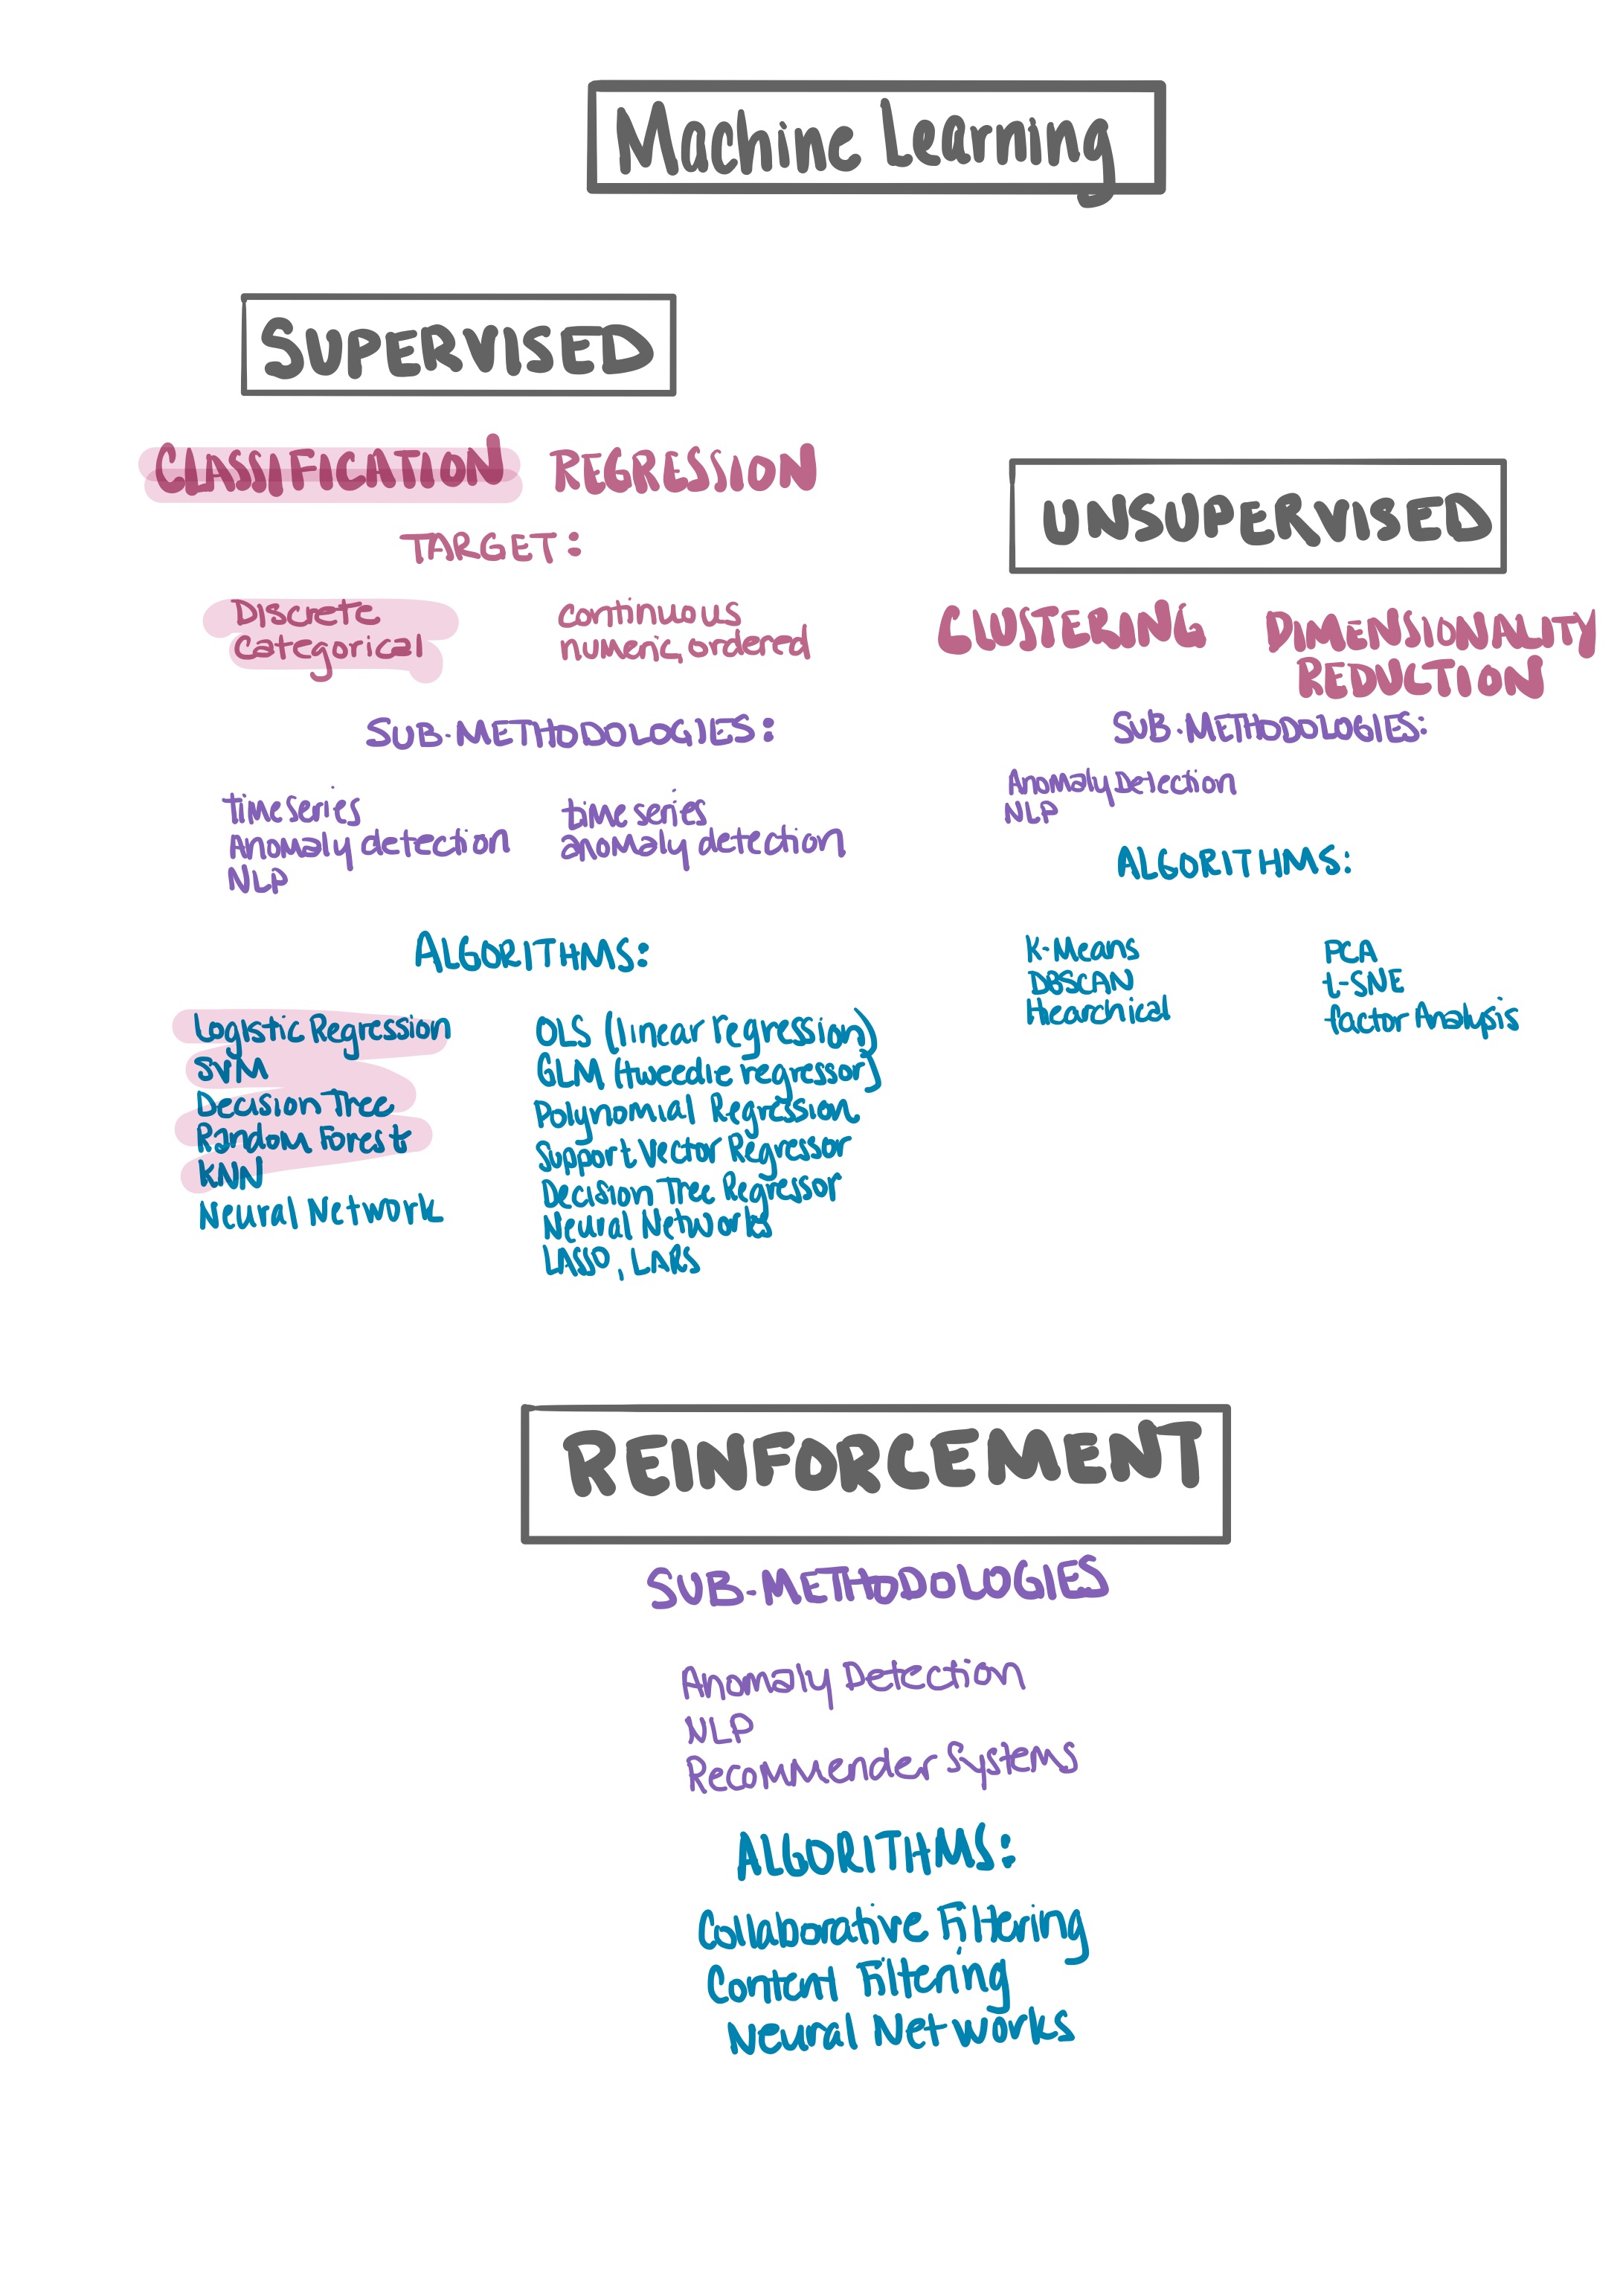 Machine Learning
SUPERVISED
CLASSIFICATION REGRESSION
TARGET:
Discrete
Categorical
continuous
numeric, ordered
SUB-METHODOLOGIES:
time series
Anomaly detection
NLP
time series
anomaly detection
ALGORITHMS:
Logistic Regression
SVM
Decision Tree
Random Forest
KNN
Neural Network
OLS (linear regression)
GLM (tweedie regressor)
Polynomial Regression
Support Vector Regressor
Decision Tree Regressor
Neural Networks
LASSO, LARS
UNSUPERVISED
CLUSTERING
DIMENSIONALITY
REDUCTION
SUB-METHODOLOGIES:
Anomaly Detection
NLP
ALGORITHMS:
K-Means
DBSCAN
Hiearchical
PCA
t-SNE
factor Analysis
REINFORCEMENT
SUB-METHODOLOGIES
Anomaly Detection
NLP
Recommender Systems
ALGORITHMS:
Collaborative Filtering
Content Filtering
Neural Networks